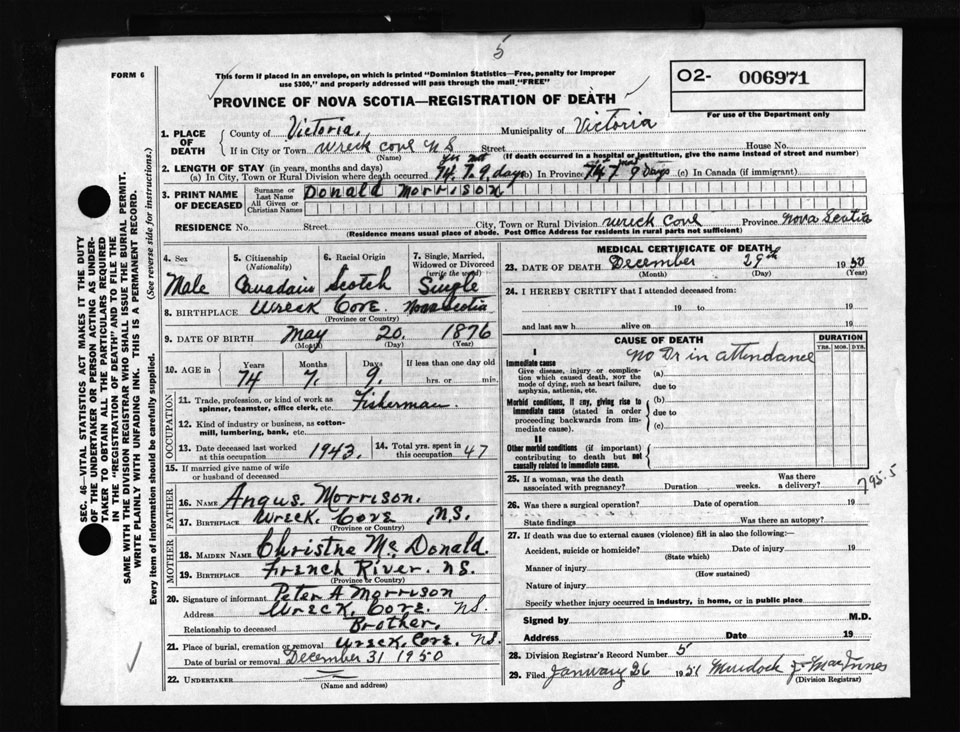 5
FORM 6
This form if placed in an envelope, on which is printed "Dominion Statistics—Free, penalty for improper
use $300," and properly addressed will pass through the mail "FREE"
PROVINCE OF NOVA SCOTIA—REGISTRATION OF DEATH
O2- 006971
For use of the Department only
SEC. 46—VITAL STATISTICS ACT MAKES IT THE DUTY
OF THE UNDERTAKER OR PERSON ACTING AS UNDER-
TAKER TO OBTAIN ALL THE PARTICULARS REQUIRED
IN THE "REGISTRATION OF DEATH" AND TO FILE THE
SAME WITH THE DIVISION REGISTRAR WHO SHALL ISSUE THE BURIAL PERMIT.
WRITE PLAINLY WITH UNFADING INK. THIS IS A PERMANENT RECORD.
Every item of information should be carefully supplied. (See reverse side for instructions.)
1. PLACE OF DEATH
County of Victoria, Municipality of Victoria
If in City or Town Wreck Cove N S Street House No.
(Name) (If death occurred in a hospital or institution, give the name instead of street and number)
2. LENGTH OF STAY (in years, months and days)
(a) In City, Town or Rural Division where death occurred 74. 7. 9. days (b) In Province 74 7 9 Days (c) In Canada (if immigrant)
3. PRINT NAME OF DECEASED
Surname or Last Name Donald Morrison
All Given or Christian Names
RESIDENCE No. Street City, Town or Rural Division Wreck Cove Province Nova Scotia
(Residence means usual place of abode. Post Office Address for residents in rural parts not sufficient)
4. Sex
Male
5. Citizenship
(Nationality)
Canadain
6. Racial Origin
Scotch
7. Single, Married,
Widowed or Divorced
(write the word)
Single
8. BIRTHPLACE Wreck Cove. Nova Scotia
(Province or Country)
9. DATE OF BIRTH May 20. 1876
(Month) (Day) (Year)
10. AGE in Years Months Days If less than one day old
74 7. 9. hrs. or min.
OCCUPATION
11. Trade, profession, or kind of work as
spinner, teamster, office clerk, etc. Fisherman.
12. Kind of industry or business, as cotton-
mill, lumbering, bank, etc.
13. Date deceased last worked
at this occupation 1943.
14. Total yrs. spent in
this occupation 47
15. If married give name of wife
or husband of deceased
FATHER
16. NAME Angus. Morrison.
17. BIRTHPLACE Wreck. Cove N.S.
(Province or Country)
MOTHER
18. MAIDEN NAME Christne Mc Donald.
19. BIRTHPLACE French River. NS.
(Province or Country)
20. Signature of informant Peter A Morrison
Address Wreck. Cove. NS.
Relationship to deceased Brother.
21. Place of burial, cremation or removal Wreck. Cove. NS.
Date of burial or removal December 31 1950
22. UNDERTAKER
(Name and address)
MEDICAL CERTIFICATE OF DEATH
23. DATE OF DEATH December 29th 1950
(Month) (Day) (Year)
24. I HEREBY CERTIFY that I attended deceased from:
19 to 19
and last saw h alive on 19
CAUSE OF DEATH
DURATION
YRS. MOS. DYS.
I
Immediate cause
No Dr in attendance
Give disease, injury or complica-
tion which caused death, not the
mode of dying, such as heart failure,
asphyxia, asthenia, etc.
(a)
due to
Morbid conditions, if any, giving rise to
immediate cause (stated in order
proceeding backwards from im-
mediate cause).
(b)
due to
(c)
II
Other morbid conditions (if important)
contributing to death but not
causally related to immediate cause.
25. If a woman, was the death
associated with pregnancy? Duration weeks. Was there a delivery?
795.5
26. Was there a surgical operation? Date of operation 19
State findings Was there an autopsy?
27. If death was due to external causes (violence) fill in also the following:—
Accident, suicide or homicide? Date of injury 19
(State which)
Manner of injury
(How sustained)
Nature of injury
Specify whether injury occurred in industry, in home, or in public place
Signed by M.D.
Address Date 19
28. Division Registrar's Record Number 5
29. Filed January 26 1951 Murdock J. MacInnes
(Division Registrar)